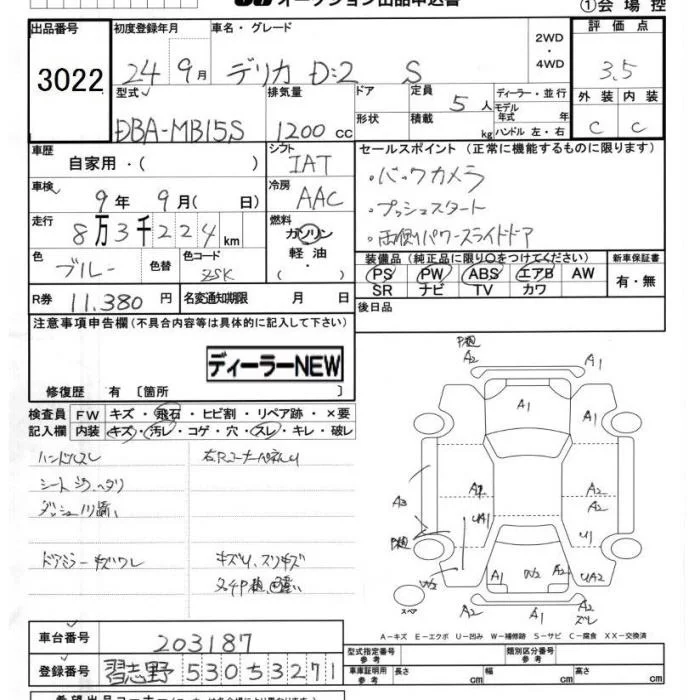 オークション出品申込書
①会場控
出品番号 初度登録年月 車名・グレード 2WD・4WD 評価点
3022 24 9月 デリカ D:2 S 3.5
型式 排気量 ドア 定員 5人 ディーラー・並行 外装 内装
モデル年式 年
DBA-MB15S 1200cc 形状 積載 kg ハンドル 左・右 C C
車歴 自家用・( ) シフト IAT セールスポイント(正常に機能するものに限ります)
車検 9年 9月( 日) 冷房 AAC ・バックカメラ
・プッシュスタート
走行 8万3千224km 燃料 ガソリン 軽油・( ) ・両側パワースライドドア
色 ブルー 色替 色コード ZSK 装備品(純正品に限り○をつけてください) 新車保証書
PS PW ABS エアB AW 有・無
SR ナビ TV カワ
R券 11.380円 名変通知期限 月 日 後日品
注意事項申告欄(不具合内容等は具体的に記入して下さい)
ディーラーNEW
修復歴 有 〔箇所 〕
検査員 FW キズ・飛石・ヒビ割・リペア跡・×要
記入欄 内装 キズ・汚レ・コゲ・穴・スレ・キレ・破レ
ハンドルスレ
シート
ドアミラーキズワレ
A2 A1
A1
A3 A2
UA1 A2
U1
A1 W2 A2 UA2
A2 A1 A2
スペア
A-キズ E-エクボ U-凹み W-補修跡 S-サビ C-腐食 XX-交換済
車台番号 203187 型式指定番号 参考 類別区分番号 参考
登録番号 習志野 530 5 3271 車庫証明用 参考 長さ 幅 高さ